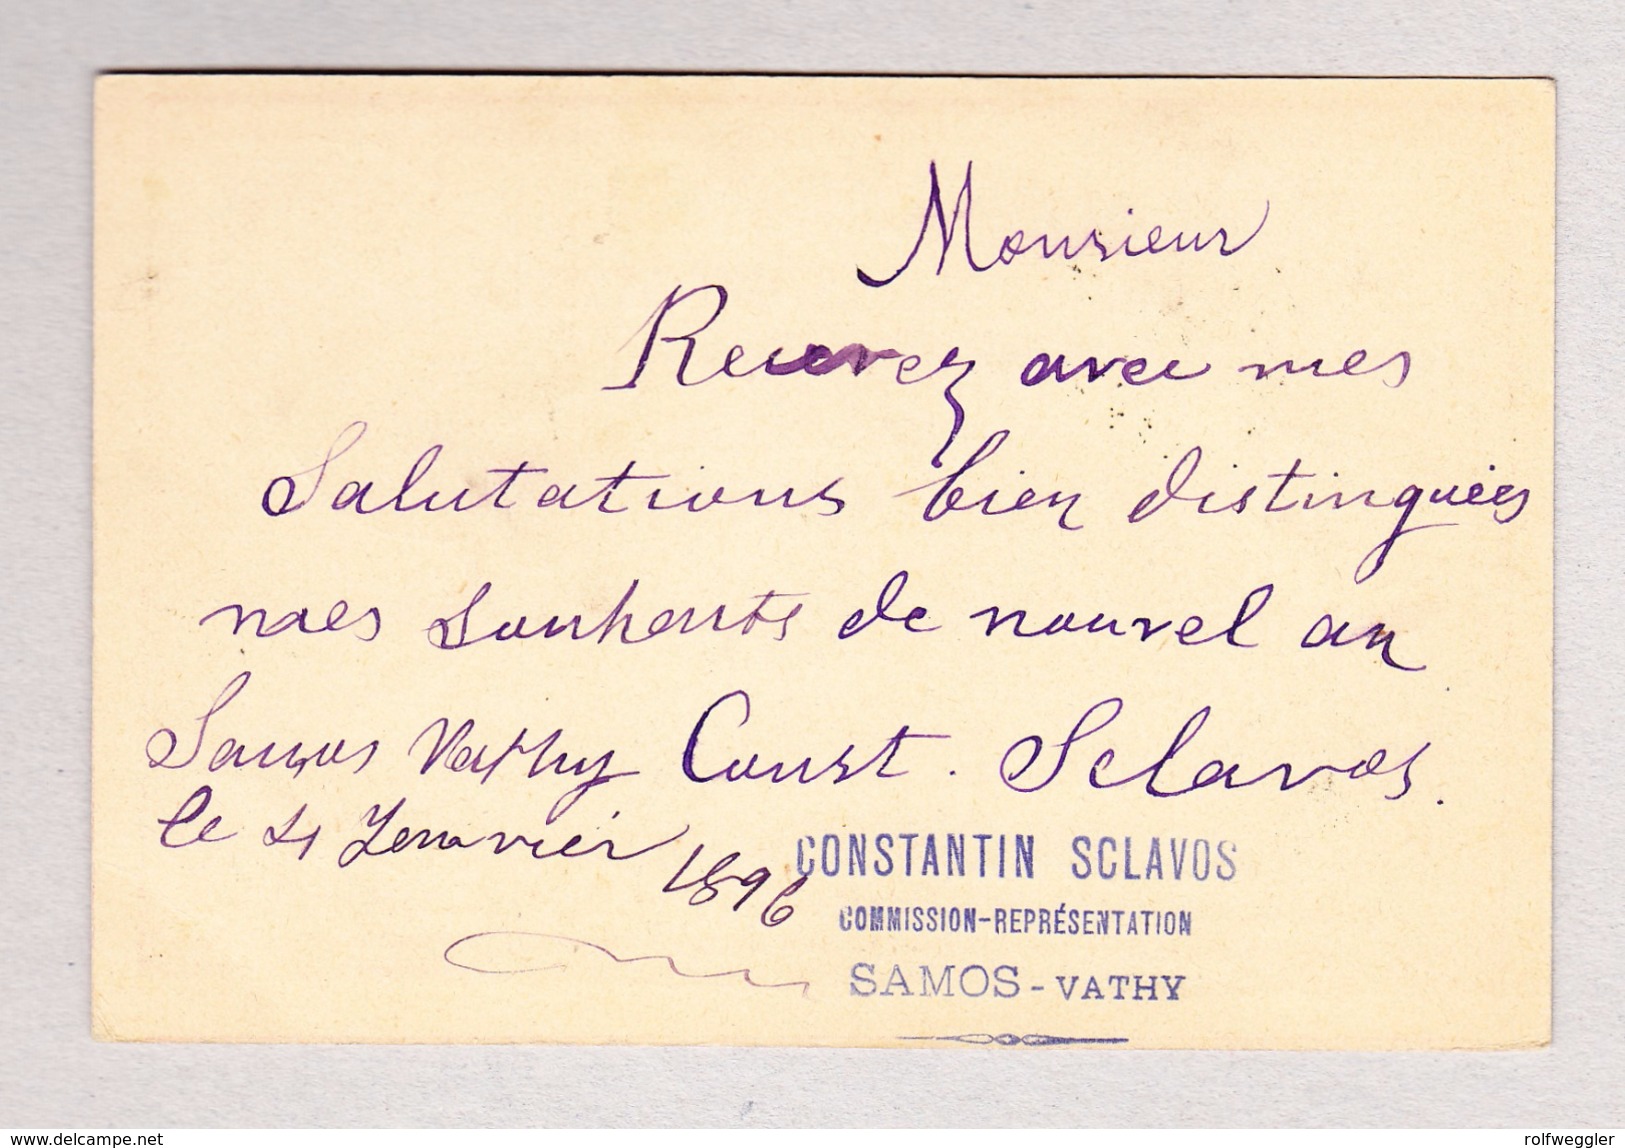 Monsieur
Recevez avec mes
Salutations bien distinguées
mes Souhaits de nouvel an
Samos Vathy Const. Sclavos.
le 4 Janvier 1896
CONSTANTIN SCLAVOS
COMMISSION-REPRÉSENTATION
SAMOS-VATHY
www.delcampe.net
rolfweggler